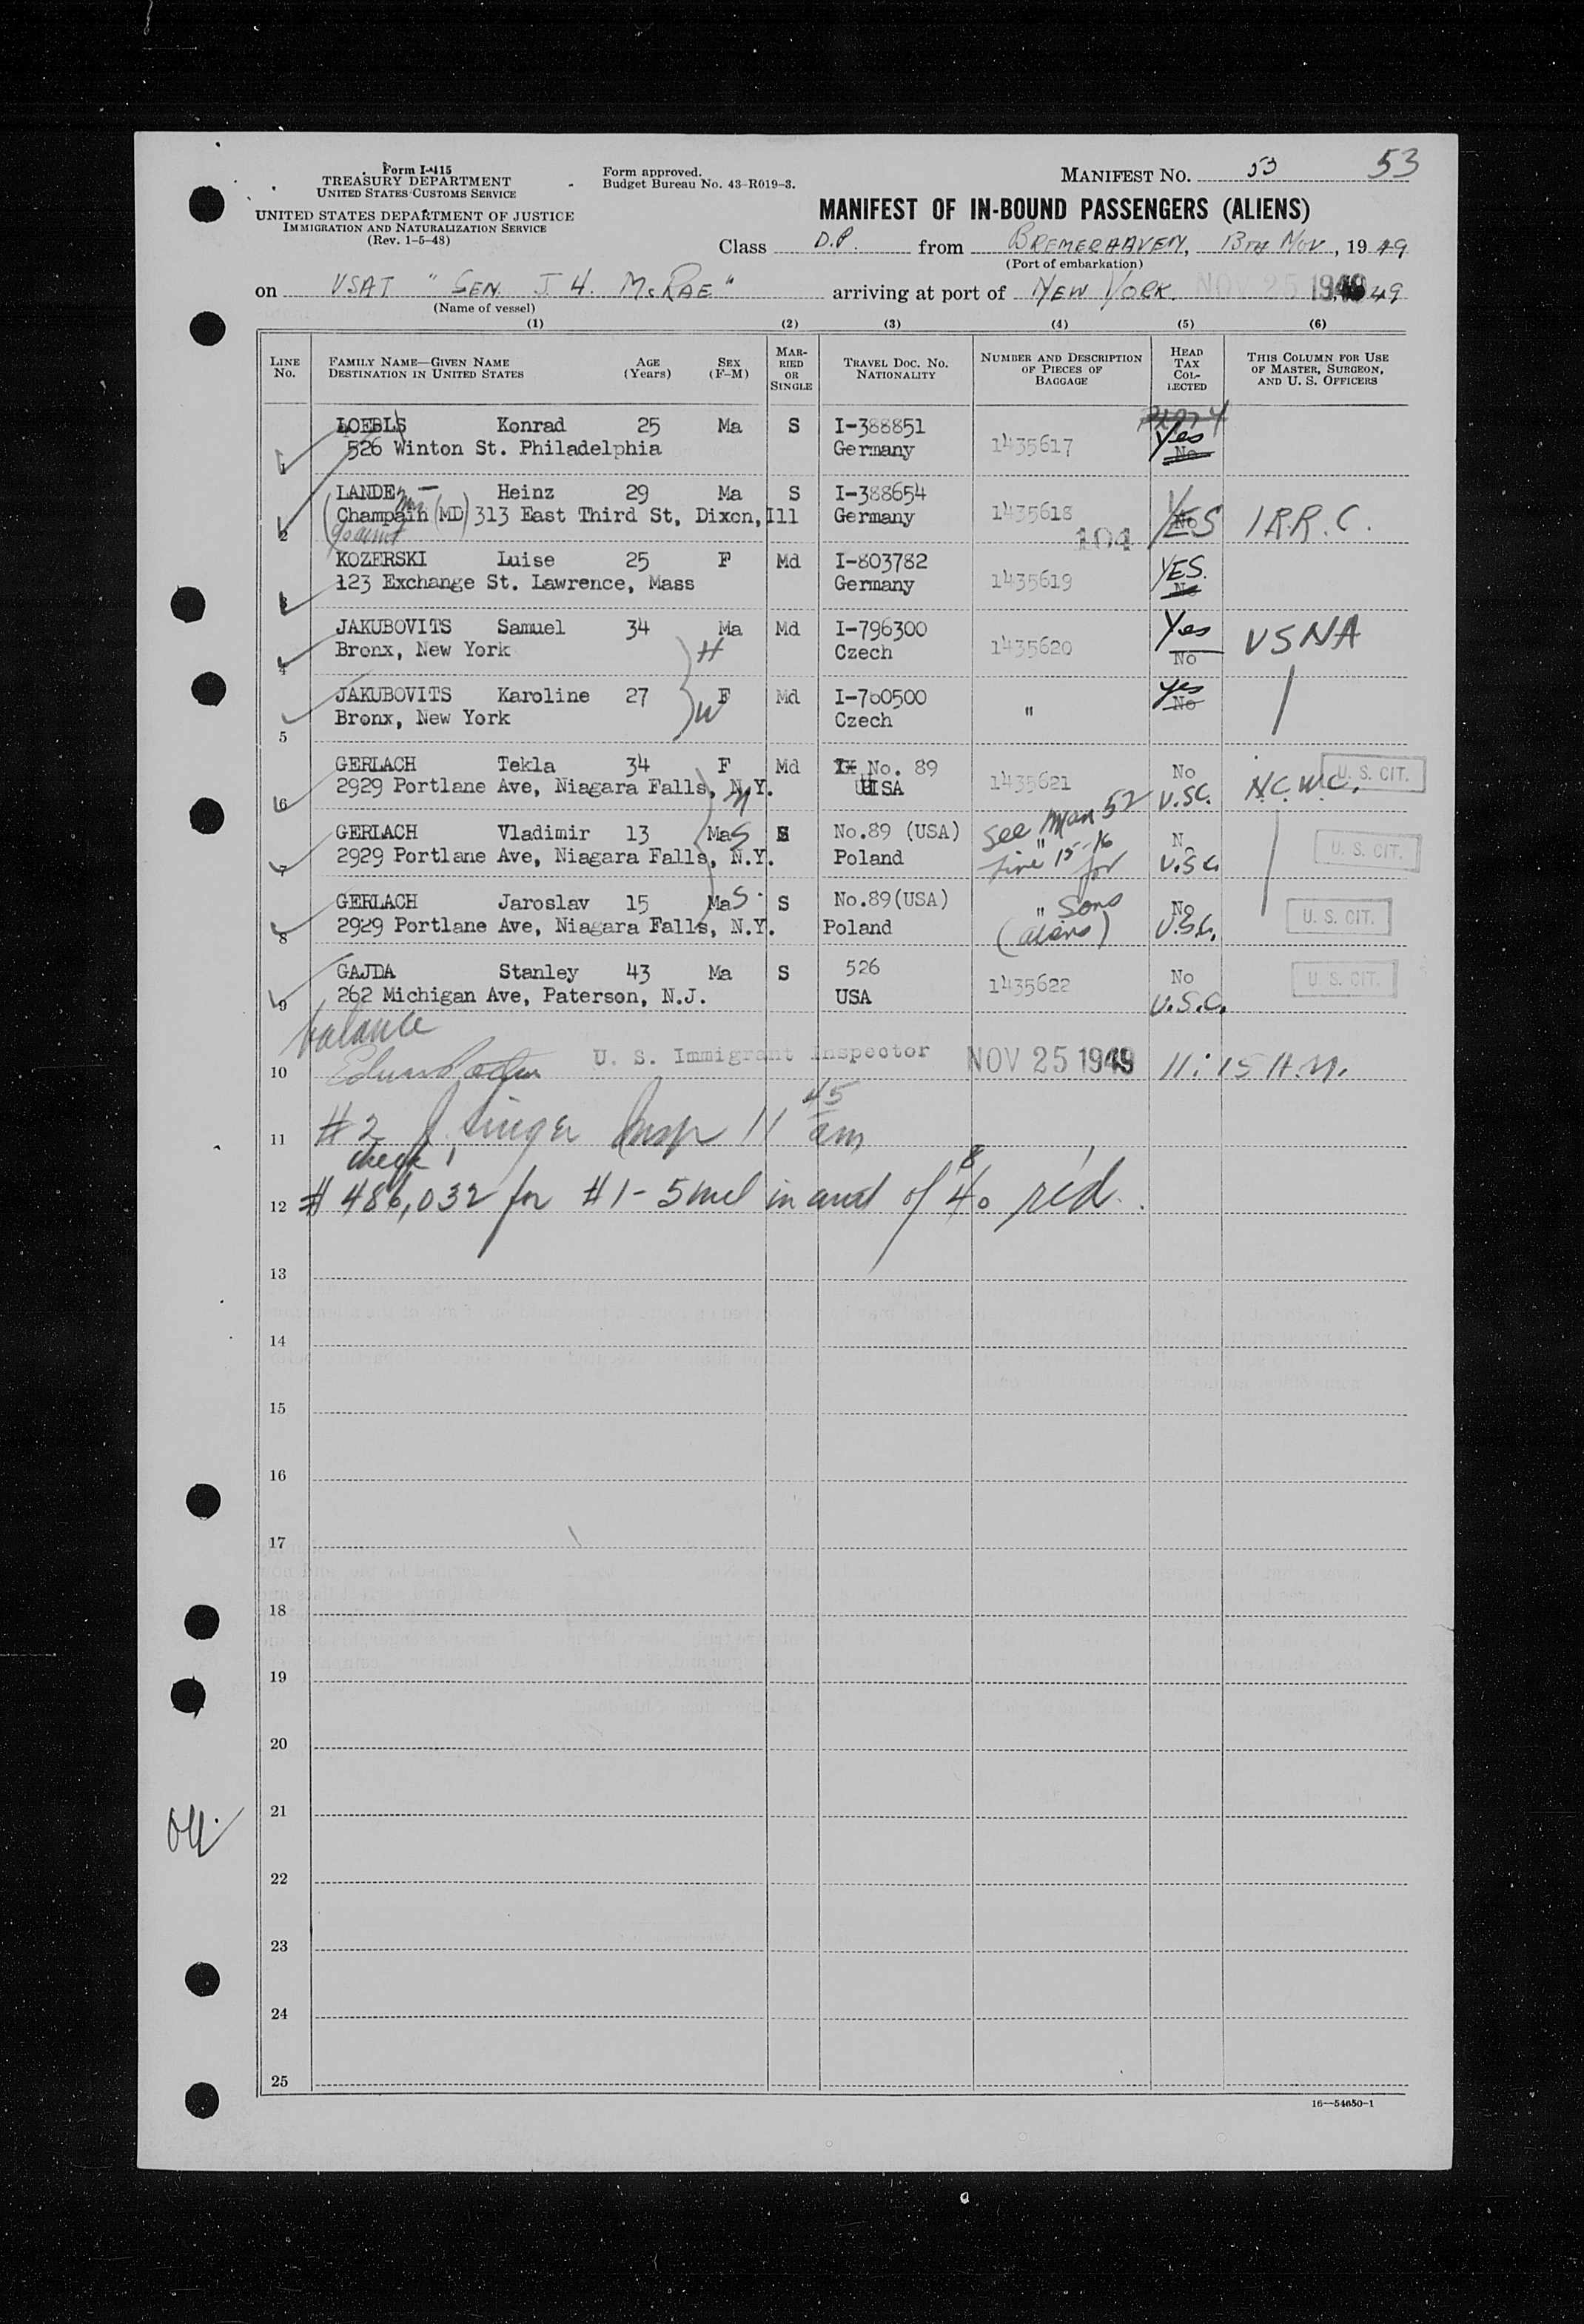 Form I-415
TREASURY DEPARTMENT
UNITED STATES CUSTOMS SERVICE
UNITED STATES DEPARTMENT OF JUSTICE
IMMIGRATION AND NATURALIZATION SERVICE
(Rev. 1-5-48)
Form approved.
Budget Bureau No. 43-R019-3.
MANIFEST No. 53 53
MANIFEST OF IN-BOUND PASSENGERS (ALIENS)
Class D.P. from BREMERHAVEN, 13TH NOV, 1949
(Port of embarkation)
on USAT "GEN. J. H. McRAE" arriving at port of NEW YORK. NOV 25 1949 49
(Name of vessel)
(1) (2) (3) (4) (5) (6)
LINE No. FAMILY NAME—GIVEN NAME DESTINATION IN UNITED STATES AGE (Years) SEX (F-M) MARRIED OR SINGLE TRAVEL DOC. NO. NATIONALITY NUMBER AND DESCRIPTION OF PIECES OF BAGGAGE HEAD TAX COLLECTED THIS COLUMN FOR USE OF MASTER, SURGEON, AND U. S. OFFICERS
1 LOEBLS Konrad 25 Ma S I-388851 1435617 Yes No
526 Winton St. Philadelphia Germany
2 LANDE Heinz 29 Ma S I-388654 1435618 YES No I.R.R.C.
Champain (MD) 313 East Third St, Dixon, Ill Germany 104
3 KOZERSKI Luise 25 F Md I-803782 1435619 YES. No
123 Exchange St. Lawrence, Mass Germany
4 JAKUBOVITS Samuel 34 Ma Md I-796300 1435620 Yes No USNA
Bronx, New York H Czech
5 JAKUBOVITS Karoline 27 F Md I-760500 " yes No
Bronx, New York W Czech
6 GERLACH Tekla 34 F Md No. 89 1435621 No N.C.W.C. U. S. CIT.
2929 Portlane Ave, Niagara Falls, N.Y. M USA U.SC.
7 GERLACH Vladimir 13 Ma S S No.89 (USA) " See Man 52 N U. S. CIT.
2929 Portlane Ave, Niagara Falls, N.Y. Poland Line 15-16 for U.S.C.
8 GERLACH Jaroslav 15 Ma S. S No.89(USA) " Sons No U. S. CIT.
2929 Portlane Ave, Niagara Falls, N.Y. Poland (aliens) U.S.C.
9 GAJDA Stanley 43 Ma S 526 1435622 No U. S. CIT.
262 Michigan Ave, Paterson, N.J. USA U.S.C.
balance
10 U. S. Immigrant Inspector NOV 25 1949 11:15 A.M.
11 #2 J. Singer Insp 11 45 am
check
12 # 486,032 for #1-5 incl in amt of 8 40 rec'd.
13
14
15
16
17
18
19
20
21
22
23
24
25
16—54650-1